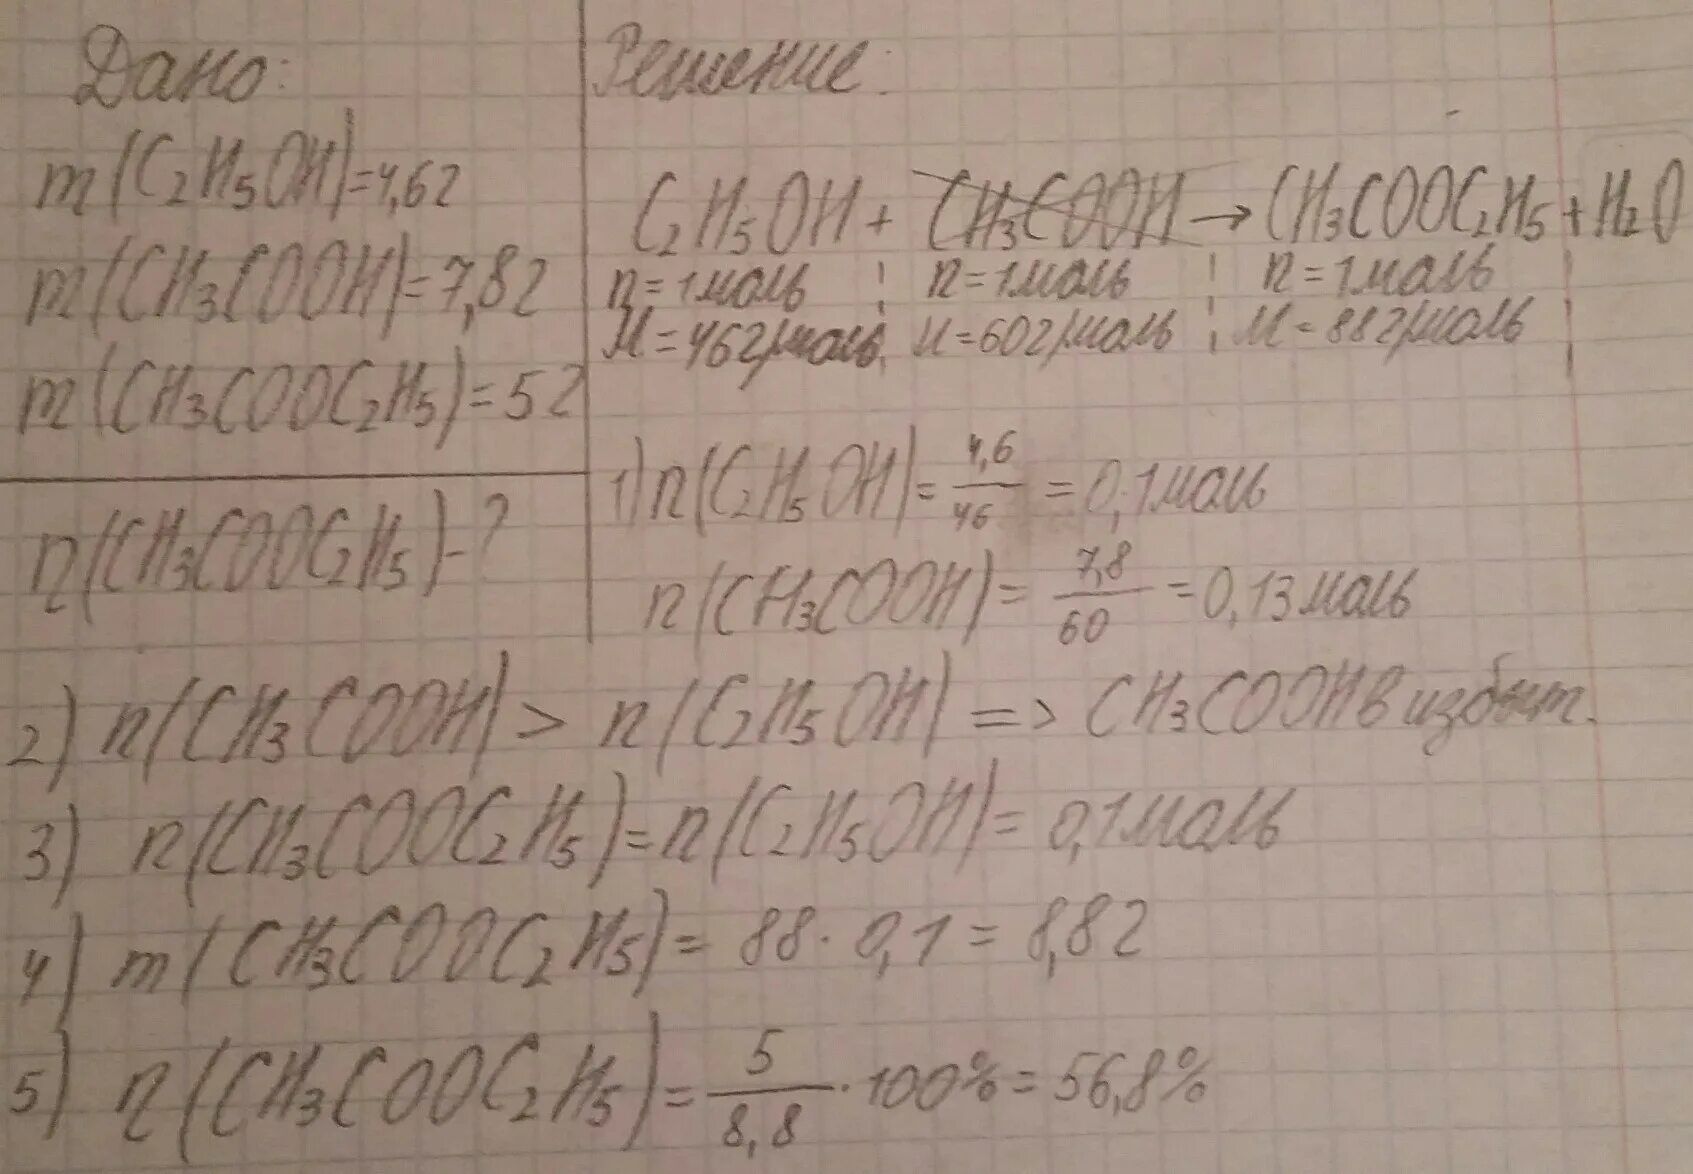 Дано:
m(C2H5OH)=4,6г
m(CH3COOH)=7,8г
m(CH3COOC2H5)=5г
η(CH3COOC2H5)-?
Решение:
C2H5OH + CH3COOH → CH3COOC2H5 + H2O
n=1моль n=1моль n=1моль
M=46г/моль M=60г/моль M=88г/моль
1) n(C2H5OH)= 4,6/46 =0,1моль
n(CH3COOH)= 7,8/60 =0,13моль
2) n(CH3COOH)> n(C2H5OH) => CH3COOH в избыт.
3) n(CH3COOC2H5)=n(C2H5OH)=0,1моль
4) m(CH3COOC2H5)= 88·0,1=8,8г
5) η(CH3COOC2H5)= 5/8,8 ·100%=56,8%